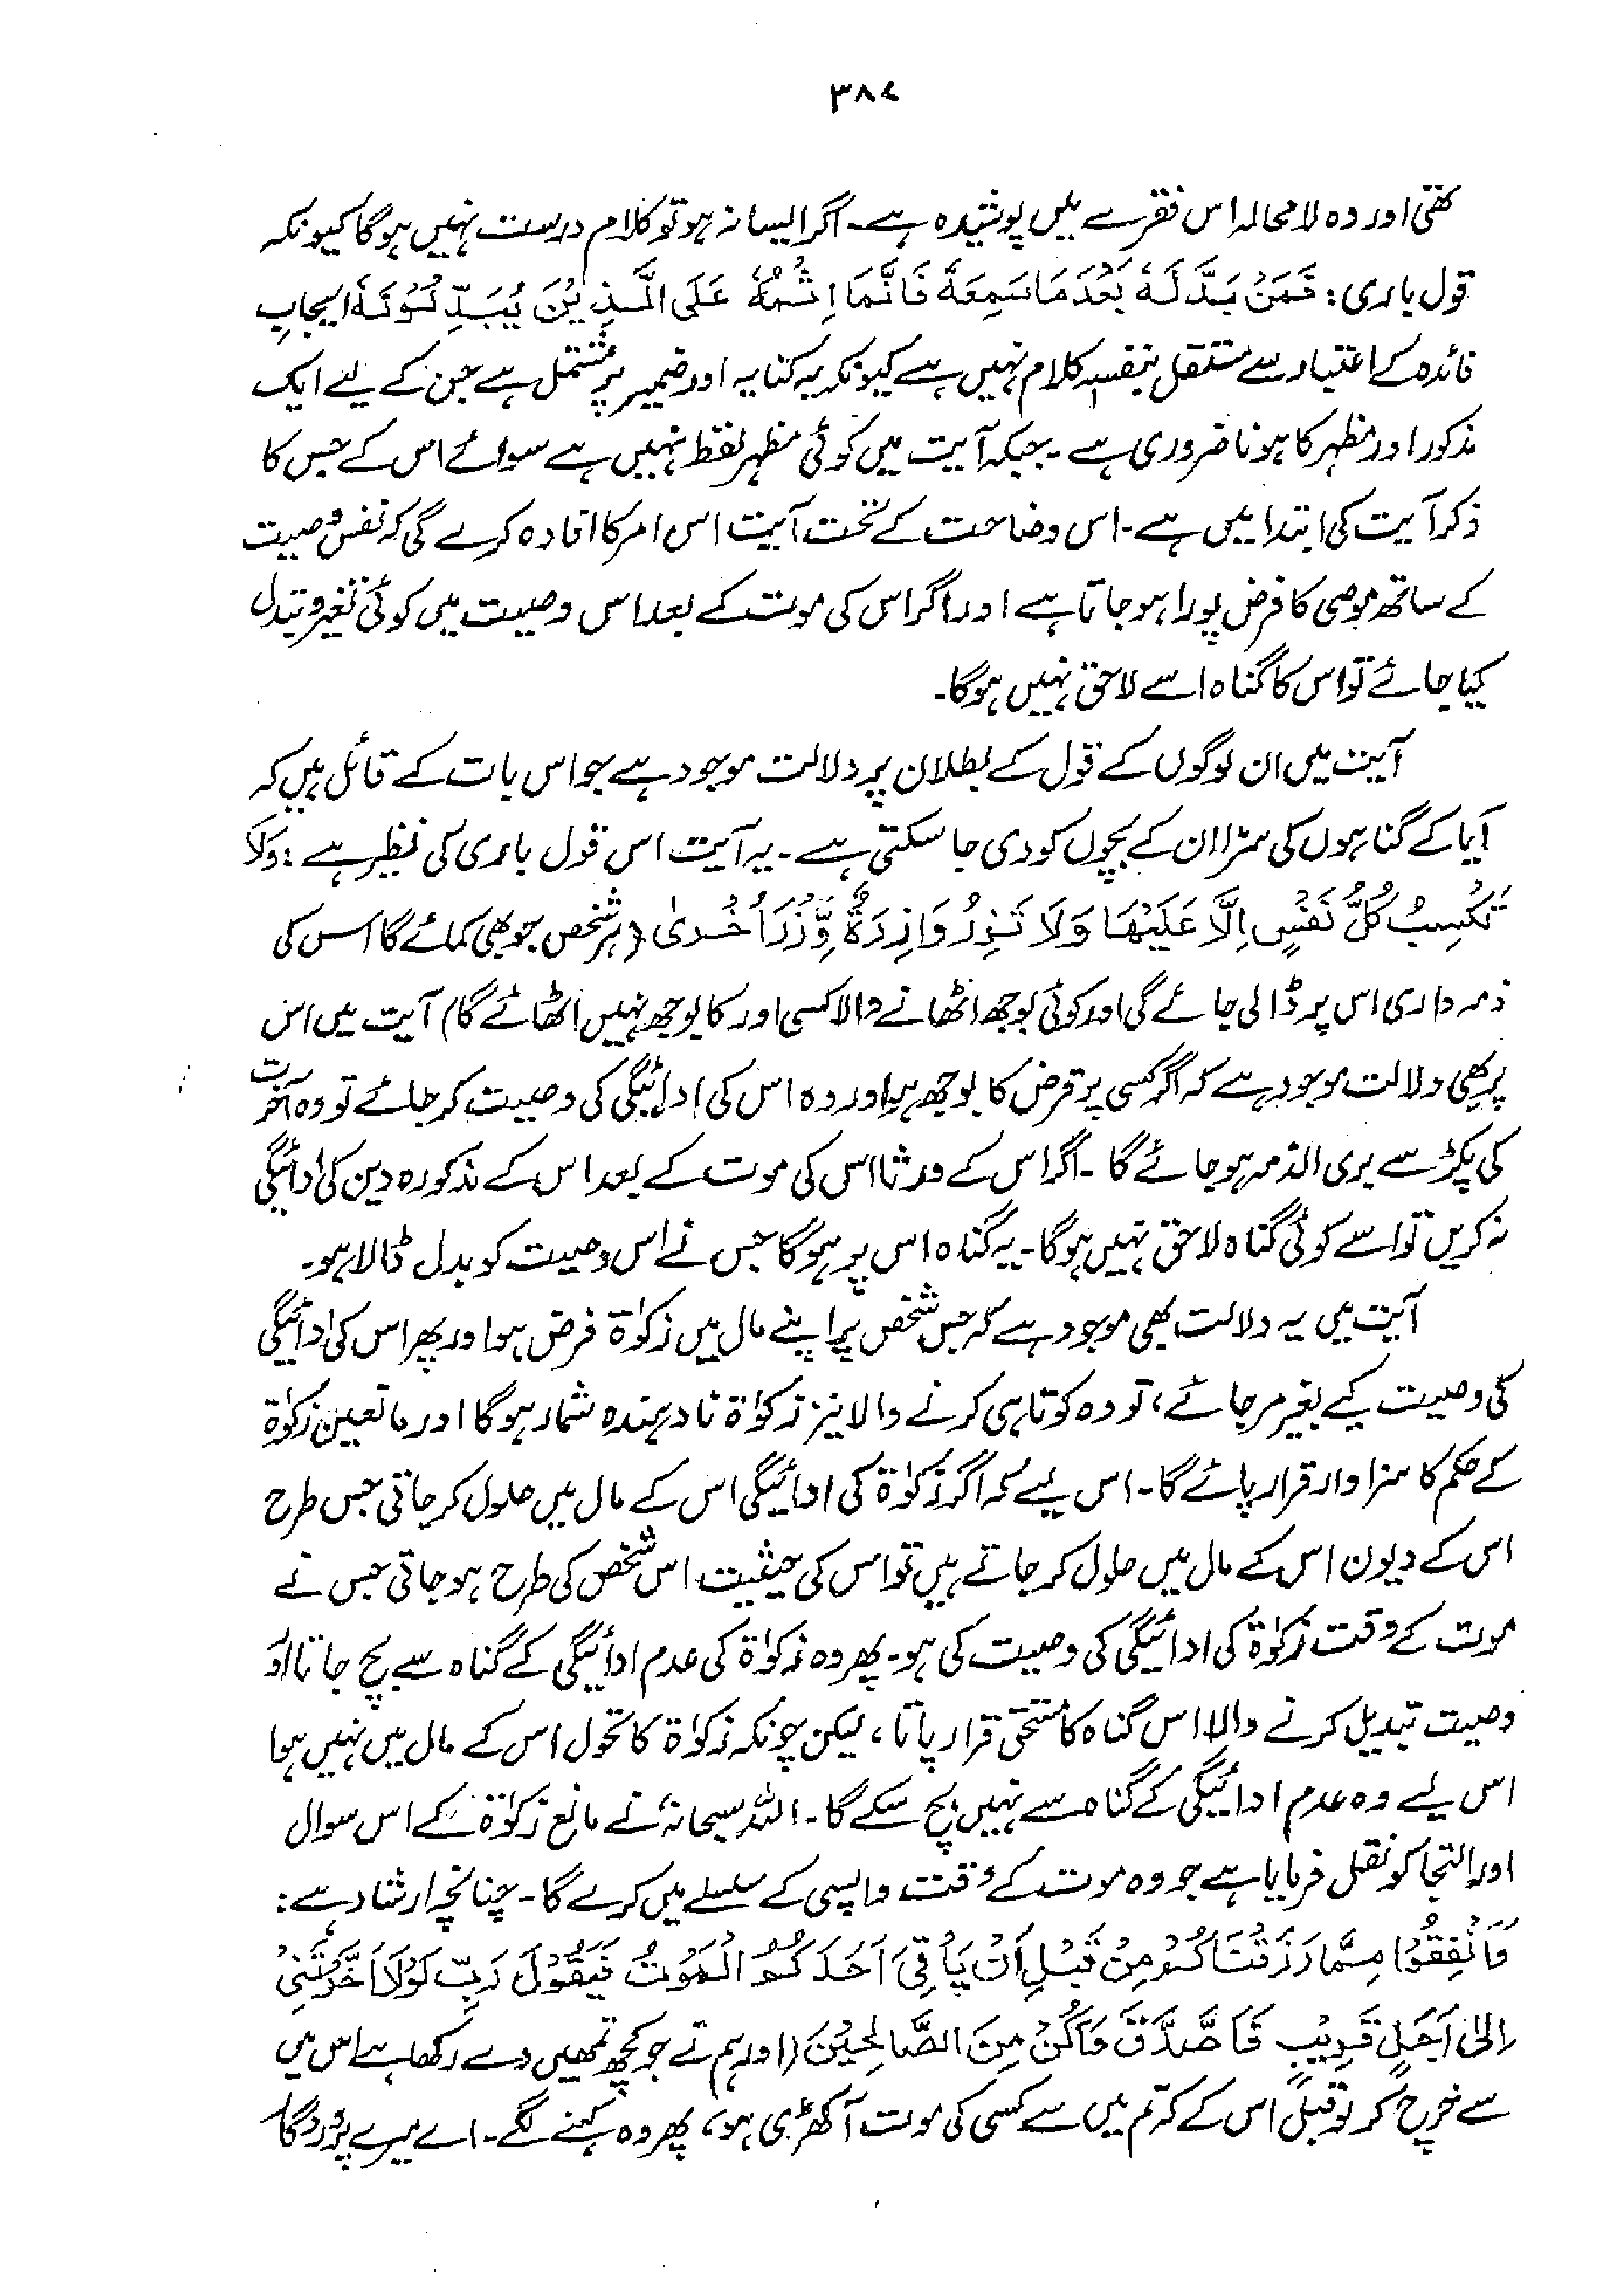 ۳۸۷
تھی اور وہ لامحالہ اس فقرے میں پوشیدہ ہے۔ اگر ایسا نہ ہو تو کلام درست نہیں ہوگا کیونکہ
قول باری: فَمَنْ بَدَّلَهُ بَعْدَ مَا سَمِعَهُ فَاِنَّمَا اِثْمُهُ عَلَى الَّذِيْنَ يُبَدِّلُوْنَهُ ایجابِ
فائدہ کے اعتبار سے مستقل بنفسہ کلام نہیں ہے کیونکہ یہ کنایہ اور ضمیر پر مشتمل ہے جن کے لیے ایک
مذکور اور مظہر کا ہونا ضروری ہے۔ جبکہ آیت میں کوئی مظہر لفظ نہیں ہے سوائے اس کے جس کا
ذکر آیت کی ابتدا میں ہے۔ اس وضاحت کے تحت آیت اس امر کا افادہ کرے گی کہ نفس وصیت
کے ساتھ موصی کا فرض پورا ہو جاتا ہے اور اگر اس کی موت کے بعد اس وصیت میں کوئی تغیر و تبدل
کیا جائے تو اس کا گناہ اسے لاحق نہیں ہوگا۔
آیت میں ان لوگوں کے قول کے بطلان پر دلالت موجود ہے جو اس بات کے قائل ہیں کہ
آبا کے گناہوں کی سزا ان کے بچوں کو دی جا سکتی ہے۔ یہ آیت اس قول باری کی نظیر ہے: وَلَا
تَكْسِبُ كُلُّ نَفْسٍ اِلَّا عَلَيْهَا وَلَا تَزِرُ وَازِرَةٌ وِّزْرَ اُخْرٰى (ہر شخص جو بھی کمائے گا اس کی
ذمہ داری اس پر ڈالی جائے گی اور کوئی بوجھ اٹھانے والا کسی اور کا بوجھ نہیں اٹھائے گا) آیت میں اس
پر بھی دلالت موجود ہے کہ اگر کسی پر قرض کا بوجھ ہو اور وہ اس کی ادائیگی کی وصیت کر جائے تو وہ آخرت
کی پکڑ سے بری الذمہ ہو جائے گا۔ اگر اس کے ورثا اس کی موت کے بعد اس کے مذکورہ دین کی ادائیگی
نہ کریں تو اسے کوئی گناہ لاحق نہیں ہوگا۔ یہ گناہ اس پر ہوگا جس نے اس وصیت کو بدل ڈالا ہو۔
آیت میں یہ دلالت بھی موجود ہے کہ جس شخص پر اپنے مال میں زکوٰۃ فرض ہو اور پھر اس کی ادائیگی
کی وصیت کیے بغیر مر جائے، تو وہ کوتاہی کرنے والا نیز زکوٰۃ نادہندہ شمار ہوگا اور مانعین زکوٰۃ
کے حکم کا سزاوار قرار پائے گا۔ اس لیے کہ اگر زکوٰۃ کی ادائیگی اس کے مال میں حلول کر جاتی جس طرح
اس کے دیون اس کے مال میں حلول کر جاتے ہیں تو اس کی حیثیت اس شخص کی طرح ہو جاتی جس نے
موت کے وقت زکوٰۃ کی ادائیگی کی وصیت کی ہو۔ پھر وہ زکوٰۃ کی عدم ادائیگی کے گناہ سے بچ جاتا اور
وصیت تبدیل کرنے والا اس گناہ کا مستحق قرار پاتا، لیکن چونکہ زکوٰۃ کا تحول اس کے مال میں نہیں ہوا
اس لیے وہ عدم ادائیگی کے گناہ سے نہیں بچ سکے گا۔ اللہ سبحانہ نے مانع زکوٰۃ کے اس سوال
اور التجا کو نقل فرمایا ہے جو وہ موت کے وقت واپسی کے سلسلے میں کرے گا۔ چنانچہ ارشاد ہے:
وَاَنْفِقُوْا مِمَّا رَزَقْنَاكُمْ مِنْ قَبْلِ اَنْ يَاْتِيَ اَحَدَكُمُ الْمَوْتُ فَيَقُوْلَ رَبِّ لَوْلَا اَخَّرْتَنِىْ
اِلٰى اَجَلٍ قَرِيْبٍ فَاَصَّدَّقَ وَاَكُنْ مِنَ الصَّالِحِيْنَ (اور ہم نے جو کچھ تمھیں دے رکھا ہے اس میں
سے خرچ کر لو قبل اس کے کہ تم میں سے کسی کی موت آ کھڑی ہو، پھر وہ کہنے لگے۔ اے میرے پروردگار